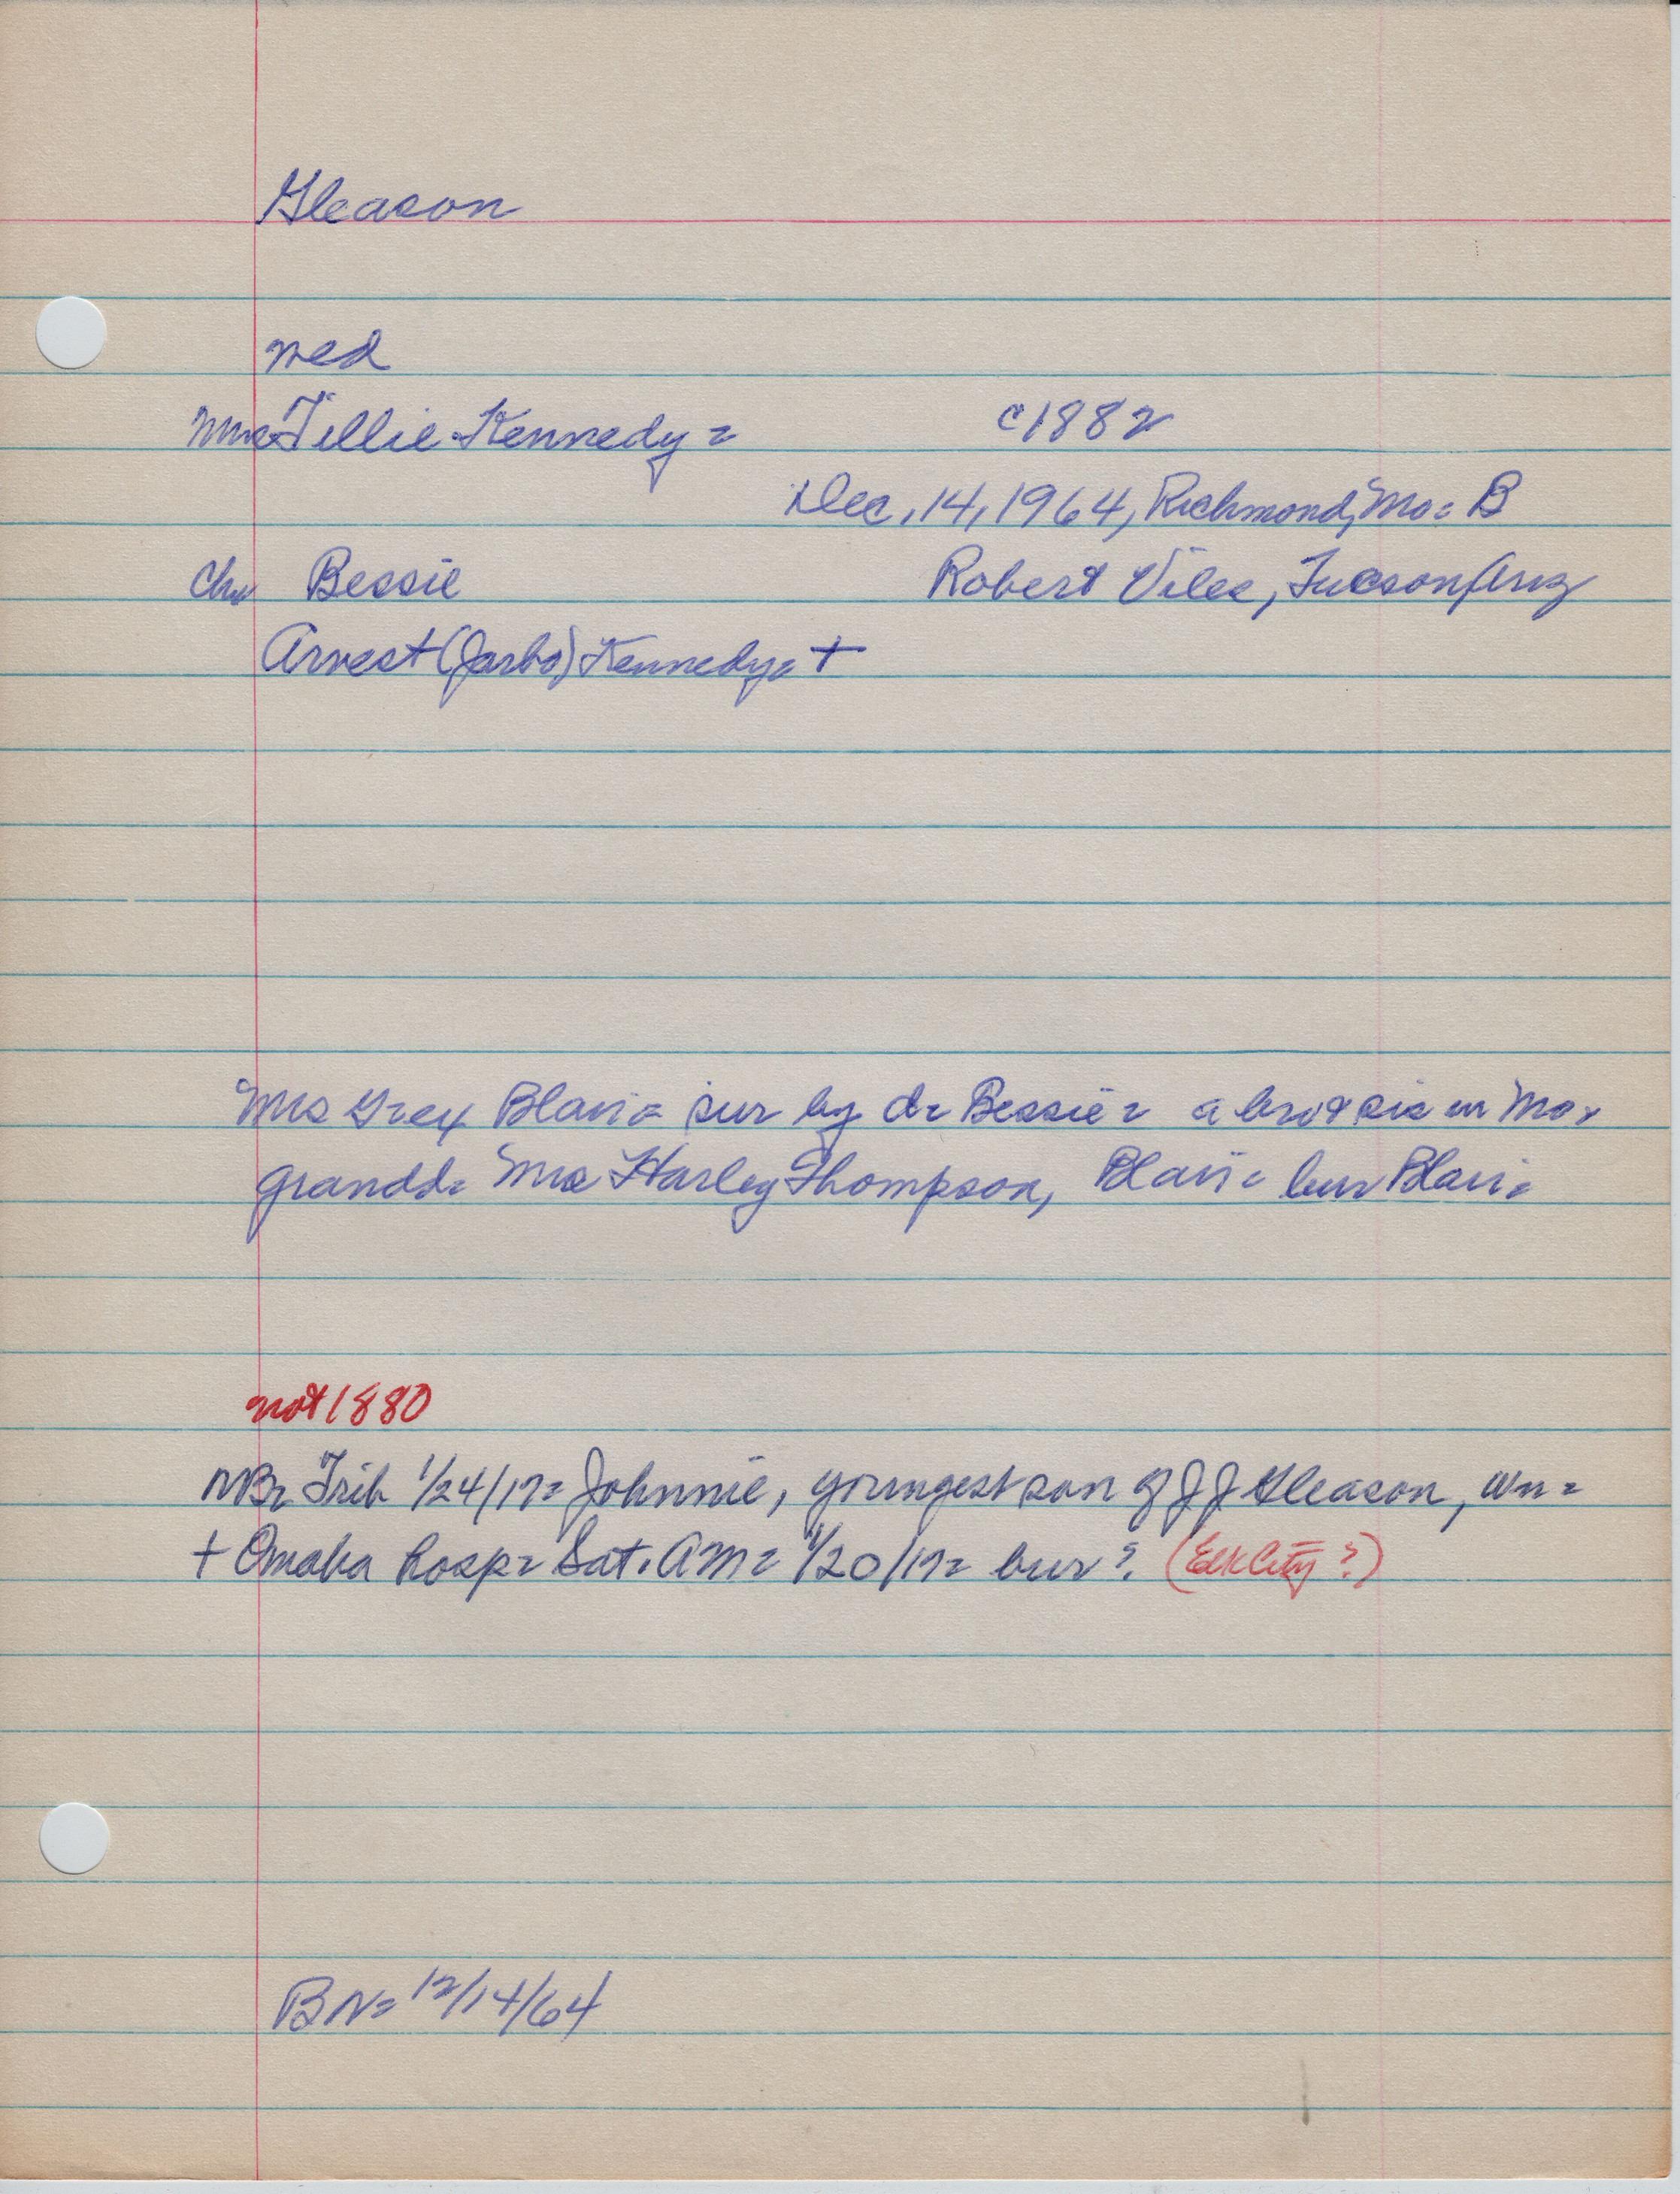 Gleason
Ned
Mrs Tillie Kennedy = c1882
Dec. 14, 1964, Richmond, Mo = B
ch Bessie Robert Viles, Tucson, Ariz
Arvest (Jarbo) Kennedy = +
Mrs Blair = sur by d = Bessie = a bro & sis in Mo,
grandd = Mrs Harley Thompson, Blair = bur Blair =
not 1880
Trib 1/24/17 = Johnnie, youngest son of J J Gleason, Wn =
+ Omaha hosp = Sat. AM = 1/20/17 = bur ? (Elk City ?)
BN = 12/14/64